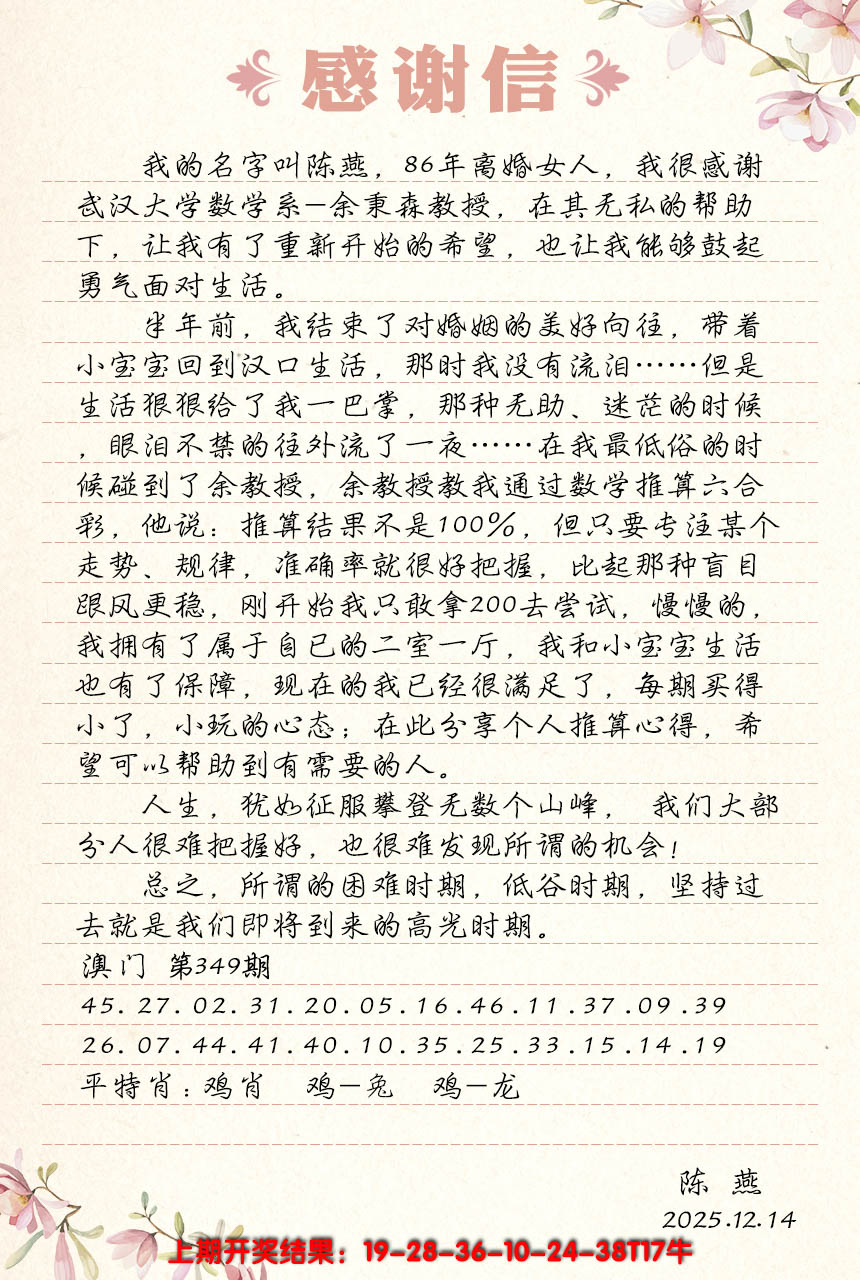 感谢信
我的名字叫陈燕，86年离婚女人，我很感谢
武汉大学数学系—余秉森教授，在其无私的帮助
下，让我有了重新开始的希望，也让我能够鼓起
勇气面对生活。
半年前，我结束了对婚姻的美好向往，带着
小宝宝回到汉口生活，那时我没有流泪……但是
生活狠狠给了我一巴掌，那种无助、迷茫的时候
，眼泪不禁的往外流了一夜……在我最低俗的时
候碰到了余教授，余教授教我通过数学推算六合
彩，他说：推算结果不是100%，但只要专注某个
走势、规律，准确率就很好把握，比起那种盲目
跟风更稳，刚开始我只敢拿200去尝试，慢慢的，
我拥有了属于自己的二室一厅，我和小宝宝生活
也有了保障，现在的我已经很满足了，每期买得
小了，小玩的心态；在此分享个人推算心得，希
望可以帮助到有需要的人。
人生，犹如征服攀登无数个山峰， 我们大部
分人很难把握好，也很难发现所谓的机会！
总之，所谓的困难时期，低谷时期，坚持过
去就是我们即将到来的高光时期。
澳门 第349期
45.27.02.31.20.05.16.46.11.37.09.39
26.07.44.41.40.10.35.25.33.15.14.19
平特肖：鸡肖 鸡—兔 鸡—龙
陈 燕
2025.12.14
上期开奖结果：19-28-36-10-24-38T17牛